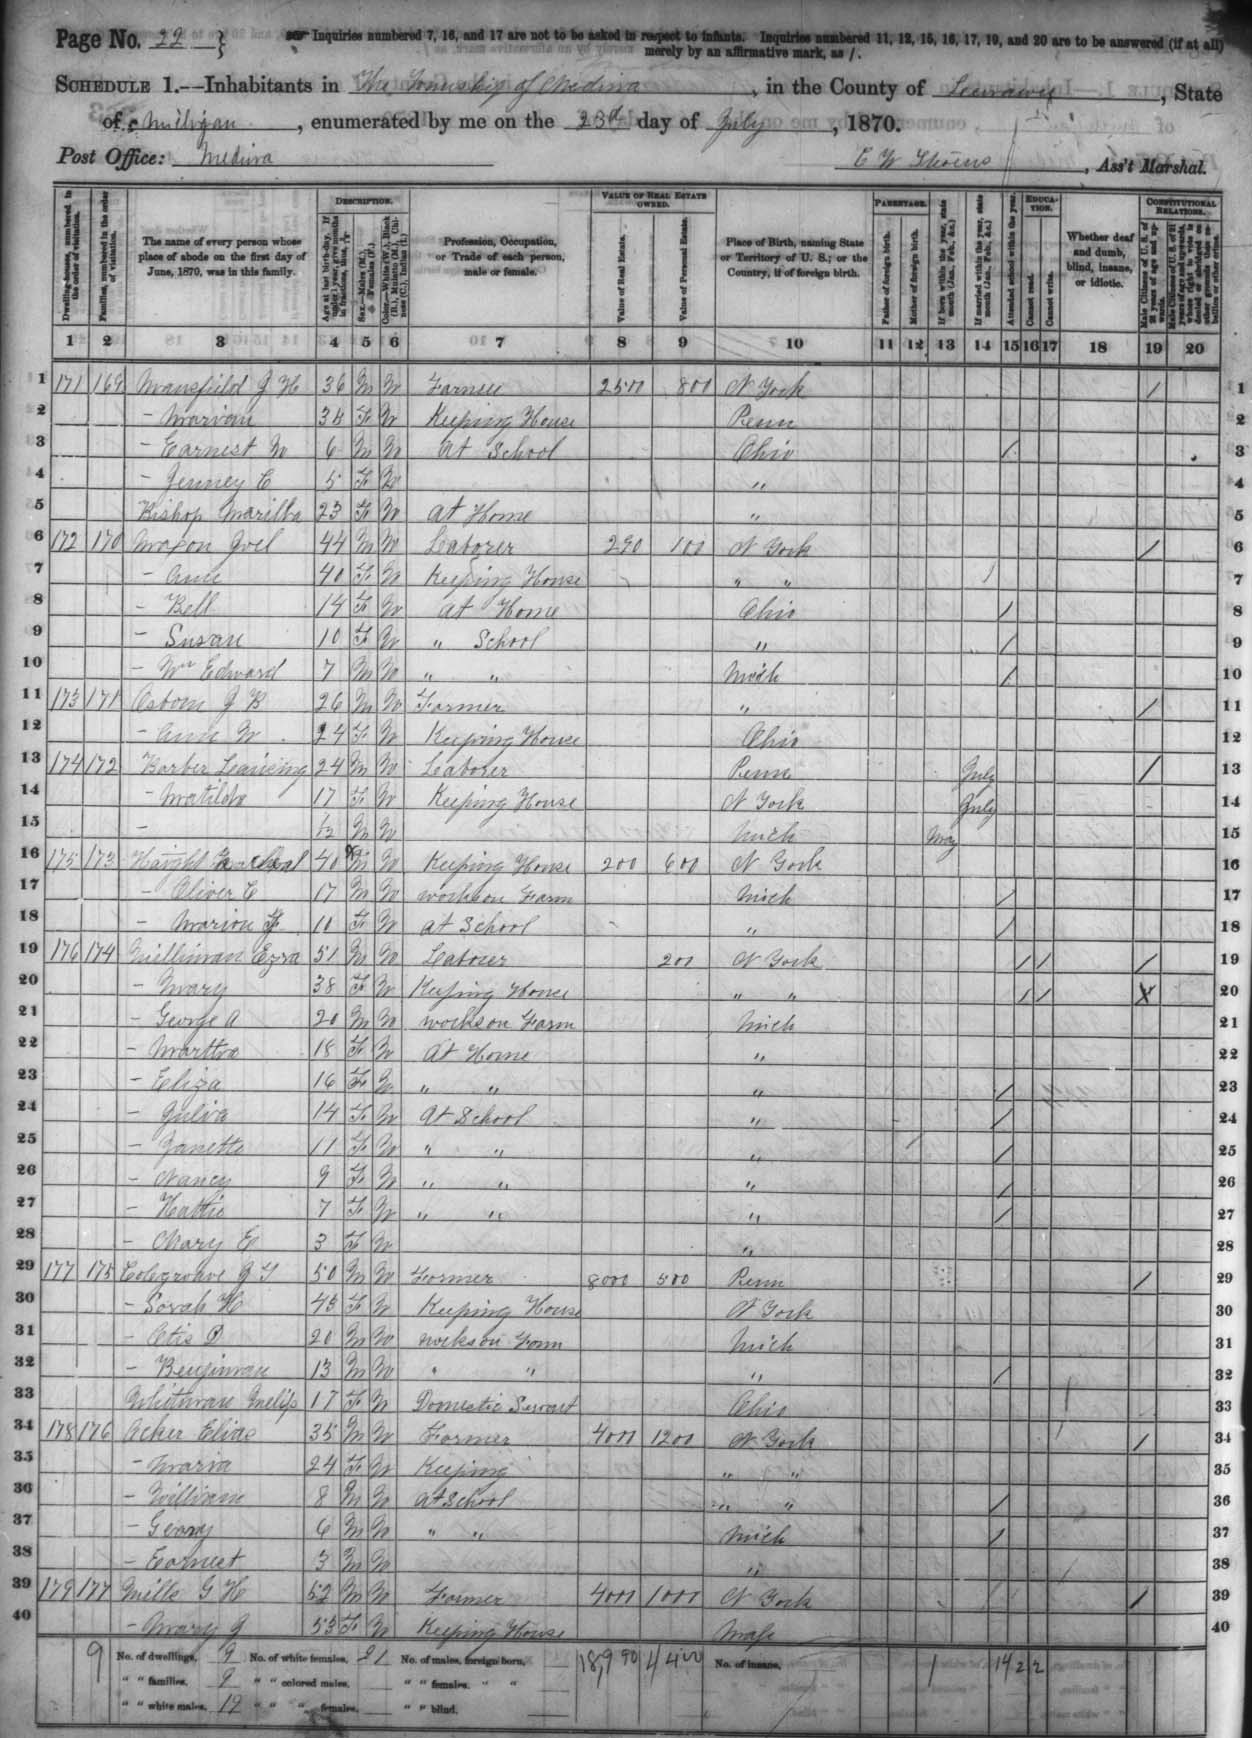 Page No. 22
Inquiries numbered 7, 16, and 17 are not to be asked in respect to infants. Inquiries numbered 11, 12, 15, 16, 17, 19, and 20 are to be answered (if at all)
merely by an affirmative mark, as /.
SCHEDULE 1.—Inhabitants in The Township of Medina, in the County of Lenawee, State
of Michigan, enumerated by me on the 23d day of July, 1870.
Post Office: Medina
E W, Ass't Marshal.
Dwelling-houses, numbered in the order of visitation.
Families, numbered in the order of visitation.
The name of every person whose place of abode on the first day of June, 1870, was in this family.
DESCRIPTION.
Age at last birth-day. If under 1 year, give months in fractions, thus,
Sex.—Males (M.), Females (F.)
Color.—White (W.), Black (B.), Mulatto (M.), Chinese (C.), Indian (I.)
Profession, Occupation, or Trade of each person, male or female.
VALUE OF REAL ESTATE OWNED.
Value of Real Estate.
Value of Personal Estate.
Place of Birth, naming State or Territory of U. S.; or the Country, if of foreign birth.
PARENTAGE.
Father of foreign birth.
Mother of foreign birth.
If born within the year, state month (Jan., Feb., &c.)
If married within the year, state month (Jan., Feb., &c.)
Attended school within the year.
EDUCATION.
Cannot read.
Cannot write.
Whether deaf and dumb, blind, insane, or idiotic.
CONSTITUTIONAL RELATIONS.
Male Citizens of U. S. of 21 years of age and upwards.
1 2 3 4 5 6 7 8 9 10 11 12 13 14 15 16 17 18 19 20
1 171 169 Mansfield J H 36 M W Farmer 2500 800 N York / 1
2 – Marian 34 F W Keeping House Penn 2
3 – Earnest W 6 M W At School Ohio / 3
4 – Jenney E 5 F W " 4
5 Bishop Marilla 23 F W At Home " 5
6 172 170 Maxon Joel 44 M W Laborer 290 100 N York / 6
7 – Ann 40 F W Keeping House " " 7
8 – Bell 14 F W At Home Ohio / 8
9 – Susan 10 F W " School " / 9
10 – Wm Edward 7 M W " " Mich / 10
11 173 171 Osborn J B 26 M W Farmer " / 11
12 – Ann W 24 F W Keeping House Ohio 12
13 174 172 Barber Lansing 24 M W Laborer Penn July / 13
14 – Matilda 17 F W Keeping House N York July 14
15 – M W Mich May 15
16 175 173 Haight 40 W Keeping House 200 600 N York 16
17 – Oliver C 17 M W works on Farm Mich / 17
18 – Marion F 10 F W At School " / 18
19 176 174 Milliman Ezra 51 M W Laborer 200 N York / / / 19
20 – Mary 38 F W Keeping House " " / / 20
21 – George A 20 M W works on Farm Mich 21
22 – Martha 18 F W At Home " 22
23 – Eliza 16 F W " " " / 23
24 – Julia 14 F W At School " / 24
25 – Janette 11 F W " " " / 25
26 – Nancy 9 F W " " " / 26
27 – Hattie 7 F W " " " / 27
28 – Mary E 3 F W " 28
29 177 175 Colegrove J T 50 M W Farmer 8000 500 Penn / 29
30 – Sarah H 43 F W Keeping House N York 30
31 – Otis P 20 M W works on Farm Mich 31
32 – Benjiman 13 M W " " " / 32
33 Whitman 17 F W Domestic Servant Ohio 33
34 178 176 Acker Elias 35 M W Farmer 4000 1200 N York / 34
35 – Maria 24 F W Keeping " " 35
36 – William 8 M W At School " " / 36
37 – Georg 6 M W " " Mich / 37
38 – Earnest 3 M W " 38
39 179 177 Mills G H 52 M W Farmer 4000 1000 N York / 39
40 – Mary J 53 F W Keeping House Mass 40
9 No. of dwellings, 9 No. of white females, 21 No. of males, foreign born, 18,990 4400 No. of insane, 1 14 2 2
" " families, 9 " " colored males, " " females, " "
" " white males, 19 " " " females, " " blind,